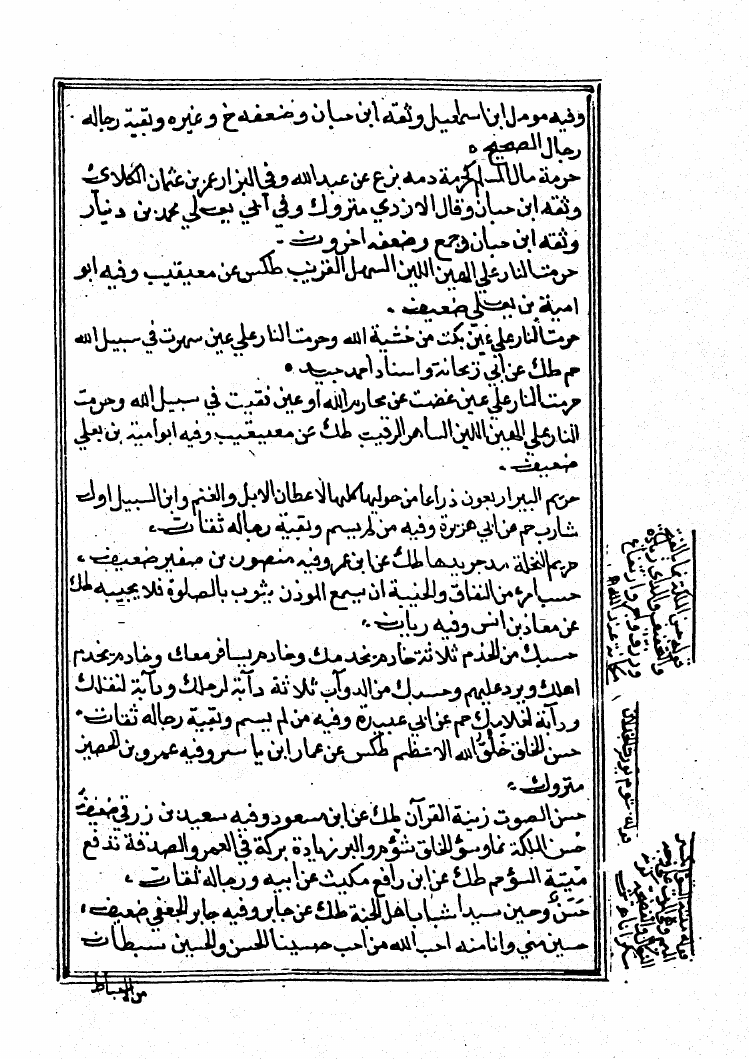 وفيه مومل ابن اسمعيل وثقه ابن حبان وضعفه خ وغيره وبقية رجاله
رجال الصحيح
حرمة مال المسلم كحرمة دمه بزع عن عبد الله وفي البزار عمر بن عثمان الكلابي
وثقه ابن حبان وقال الازدي متروك وفي ابي يعلي محمد بن دينار
وثقه ابن حبان وجمع وضعفه اخرون
حرمت النار علي الهين اللين السهل القريب طكس عن معيقيب وفيه ابو
امية بن يعلي ضعيف
حرمت النار علي عين بكت من خشية الله وحرمت النار علي عين سهرت في سبيل الله
حم طك عن ابي ريحانة واسناد احمد جيد
حرمت النار علي عين غضت عن محارم الله او عين فقيت في سبيل الله وحرمت
النار علي الهين اللين الساهر الرقيب طك عن معيقيب وفيه ابو امية بن يعلي
ضعيف
حريم البير اربعون ذراعا من حوليها كلها لاعطان الابل والغنم وابن السبيل اول
شارب حم عن ابي هريرة وفيه من لم يسم وبقية رجاله ثقات
حريم النخلة مد جريدها طك عن ابن عمر وفيه منصور بن صقير ضعيف
حسب امرء من النفاق والخيبة ان يسمع الموذن يثوب بالصلوة فلا يجيبه طك
عن معاذ بن انس وفيه ربان
حسبك من الخدم ثلاثة خادم يخدمك وخادم يسافر معك وخادم يخدم
اهلك ويرد عليهم وحسبك من الدواب ثلاثة دابة لرحلك ودابة لثقلك
ودابة لغلامك حم عن ابي عبيدة وفيه من لم يسم وبقية رجاله ثقات
حسن الخلق خلق الله الاعظم طكس عن عمار ابن ياسر وفيه عمرو بن الحصين
متروك
حسن الصوت زينة القرآن طك عن ابن مسعود وفيه سعيد بن زرقي ضعيف
حسن الملكة نما وسؤ الخلق شؤم والبر زيادة بركة في العمر والصدقة تدفع
ميتة السؤ حم طك عن ابن رافع مكيث عن ابيه ورجاله ثقات
حسن وحسين سيدا شباب اهل الجنة طك عن جابر وفيه جابر الجعفي ضعيف
حسين مني وانا منه احب الله من احب حسينا الحسن والحسين سبطان
من الاسباط
قوله حسن الملكة نما